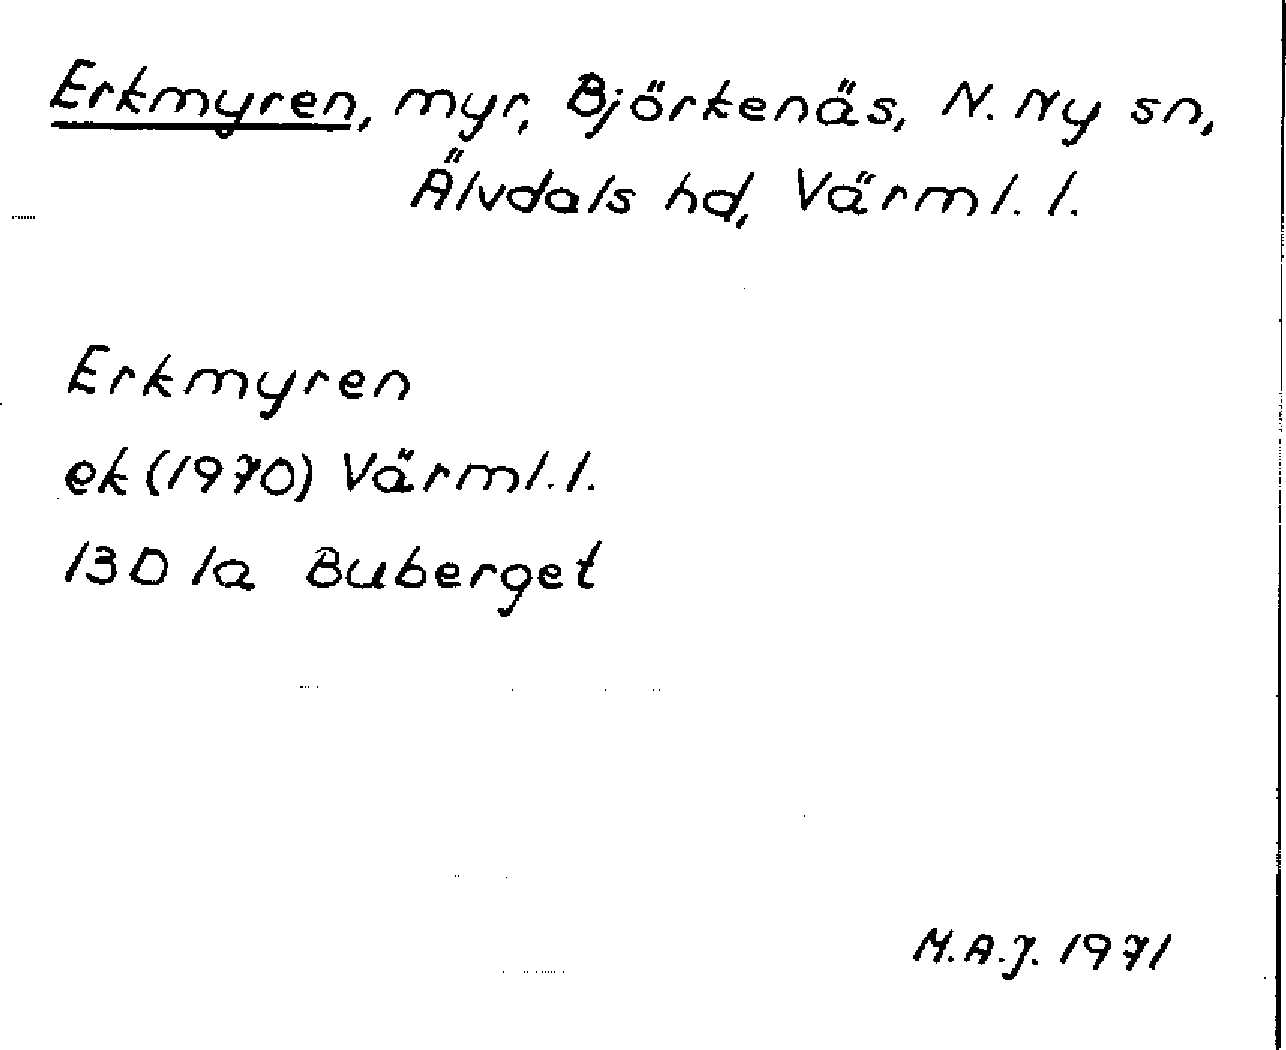 Erkmyren, myr, Björkenäs, N. Ny sn,
Älvdals hd, Värml. l.
Erkmyren
ek (1970) Värml. l.
13D 1a Buberget
M.A.J. 1971